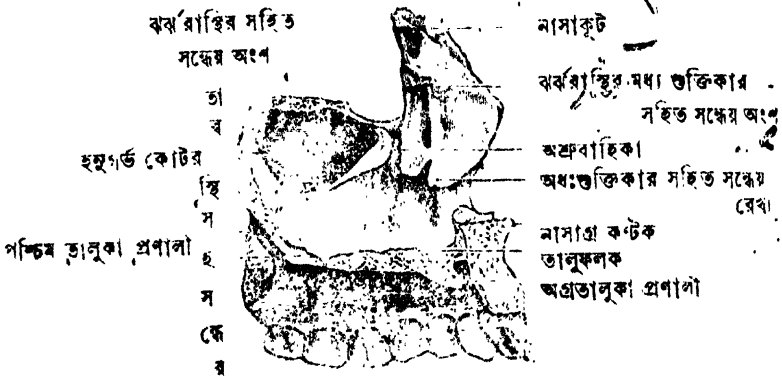 ঝর্ঝরাস্থির সহিত
সন্ধেয় অংশ
তা
ল
হনুগর্ভ কোটর
স্থি
স
পশ্চিম তালুকা প্রণালী
হ
স
ন্ধে
য়
নাসাকূট
ঝর্ঝরাস্থির মধ্য শুক্তিকার
সহিত সন্ধেয় অংশ
অশ্রুবাহিকা
অধঃশুক্তিকার সহিত সন্ধেয়
রেখা
নাসাগ্র কণ্টক
তালুফলক
অগ্রতালুকা প্রণালী